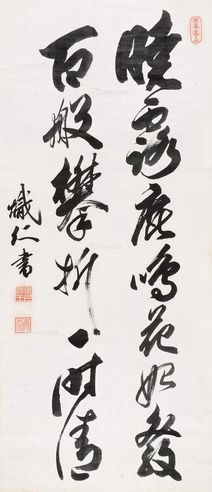 曉露庭鳴花始發
百般攀折一時清
熾仁書